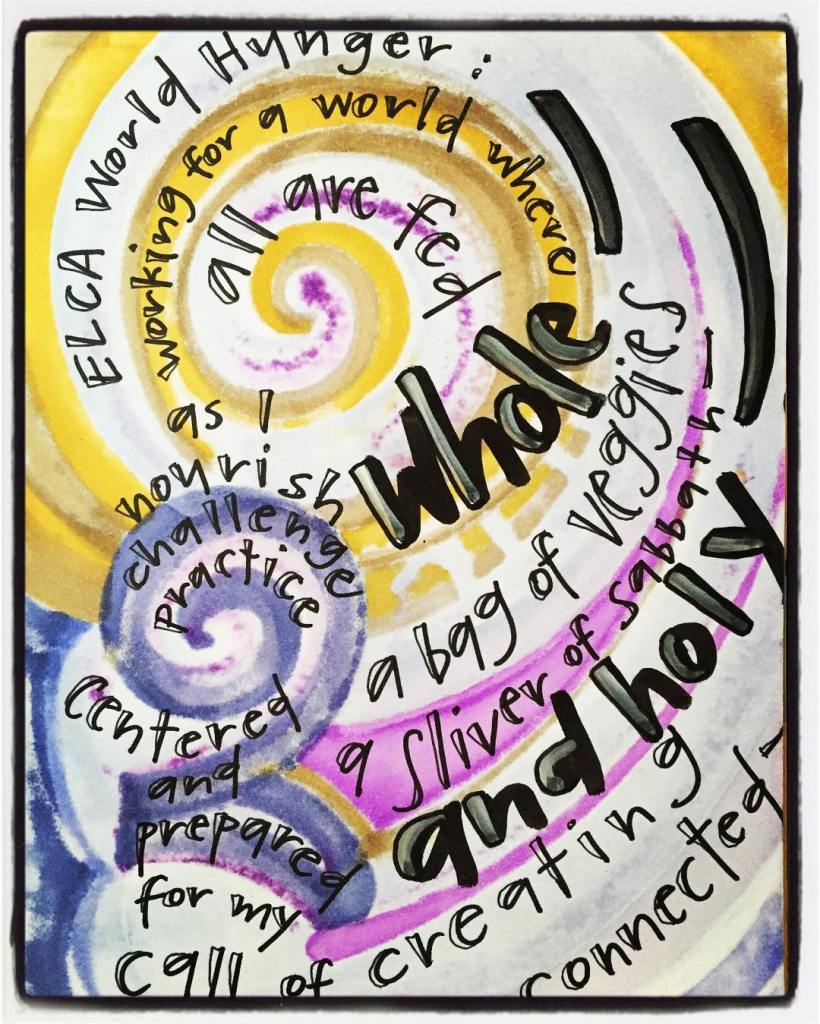 ELCA World Hunger:
working for a world where
all are fed
as I
nourish
challenge
practice
whole
a bag of veggies
a sliver of sabbath—
and holy
centered
and
prepared
for my
call of creating
connected—